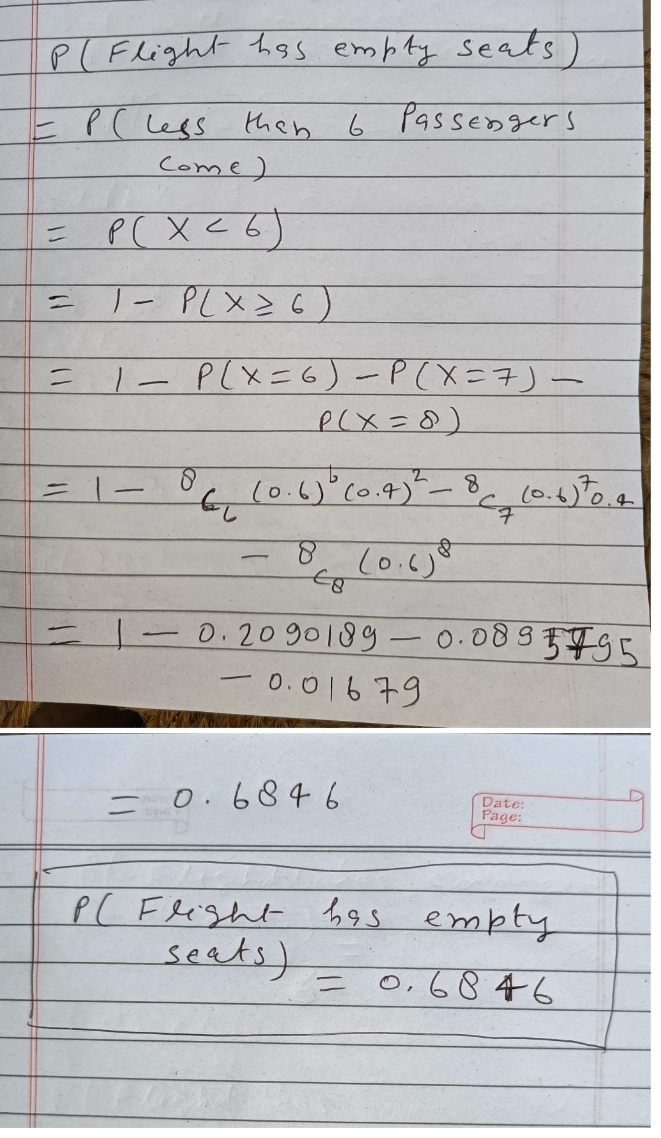 P( Flight has empty seats)
= P( Less than 6 Passengers
come)
= P( X < 6)
= 1 - P(X ≥ 6)
= 1 - P(X=6) - P(X=7) -
P(X=8)
= 1 - ⁸C₆ (0.6)⁶ (0.4)² - ⁸C₇ (0.6)⁷ 0.4
- ⁸C₈ (0.6)⁸
= 1 - 0.2090189 - 0.0895795
- 0.01679
= 0.6846
Date:
Page:
P( Flight has empty
seats)
= 0.6846